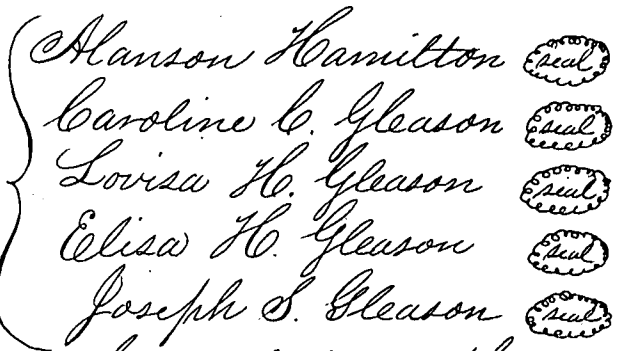 Alanson Hamilton seal
Caroline C. Gleason seal
Lovisa H. Gleason seal
Elisa H. Gleason seal
Joseph S. Gleason seal